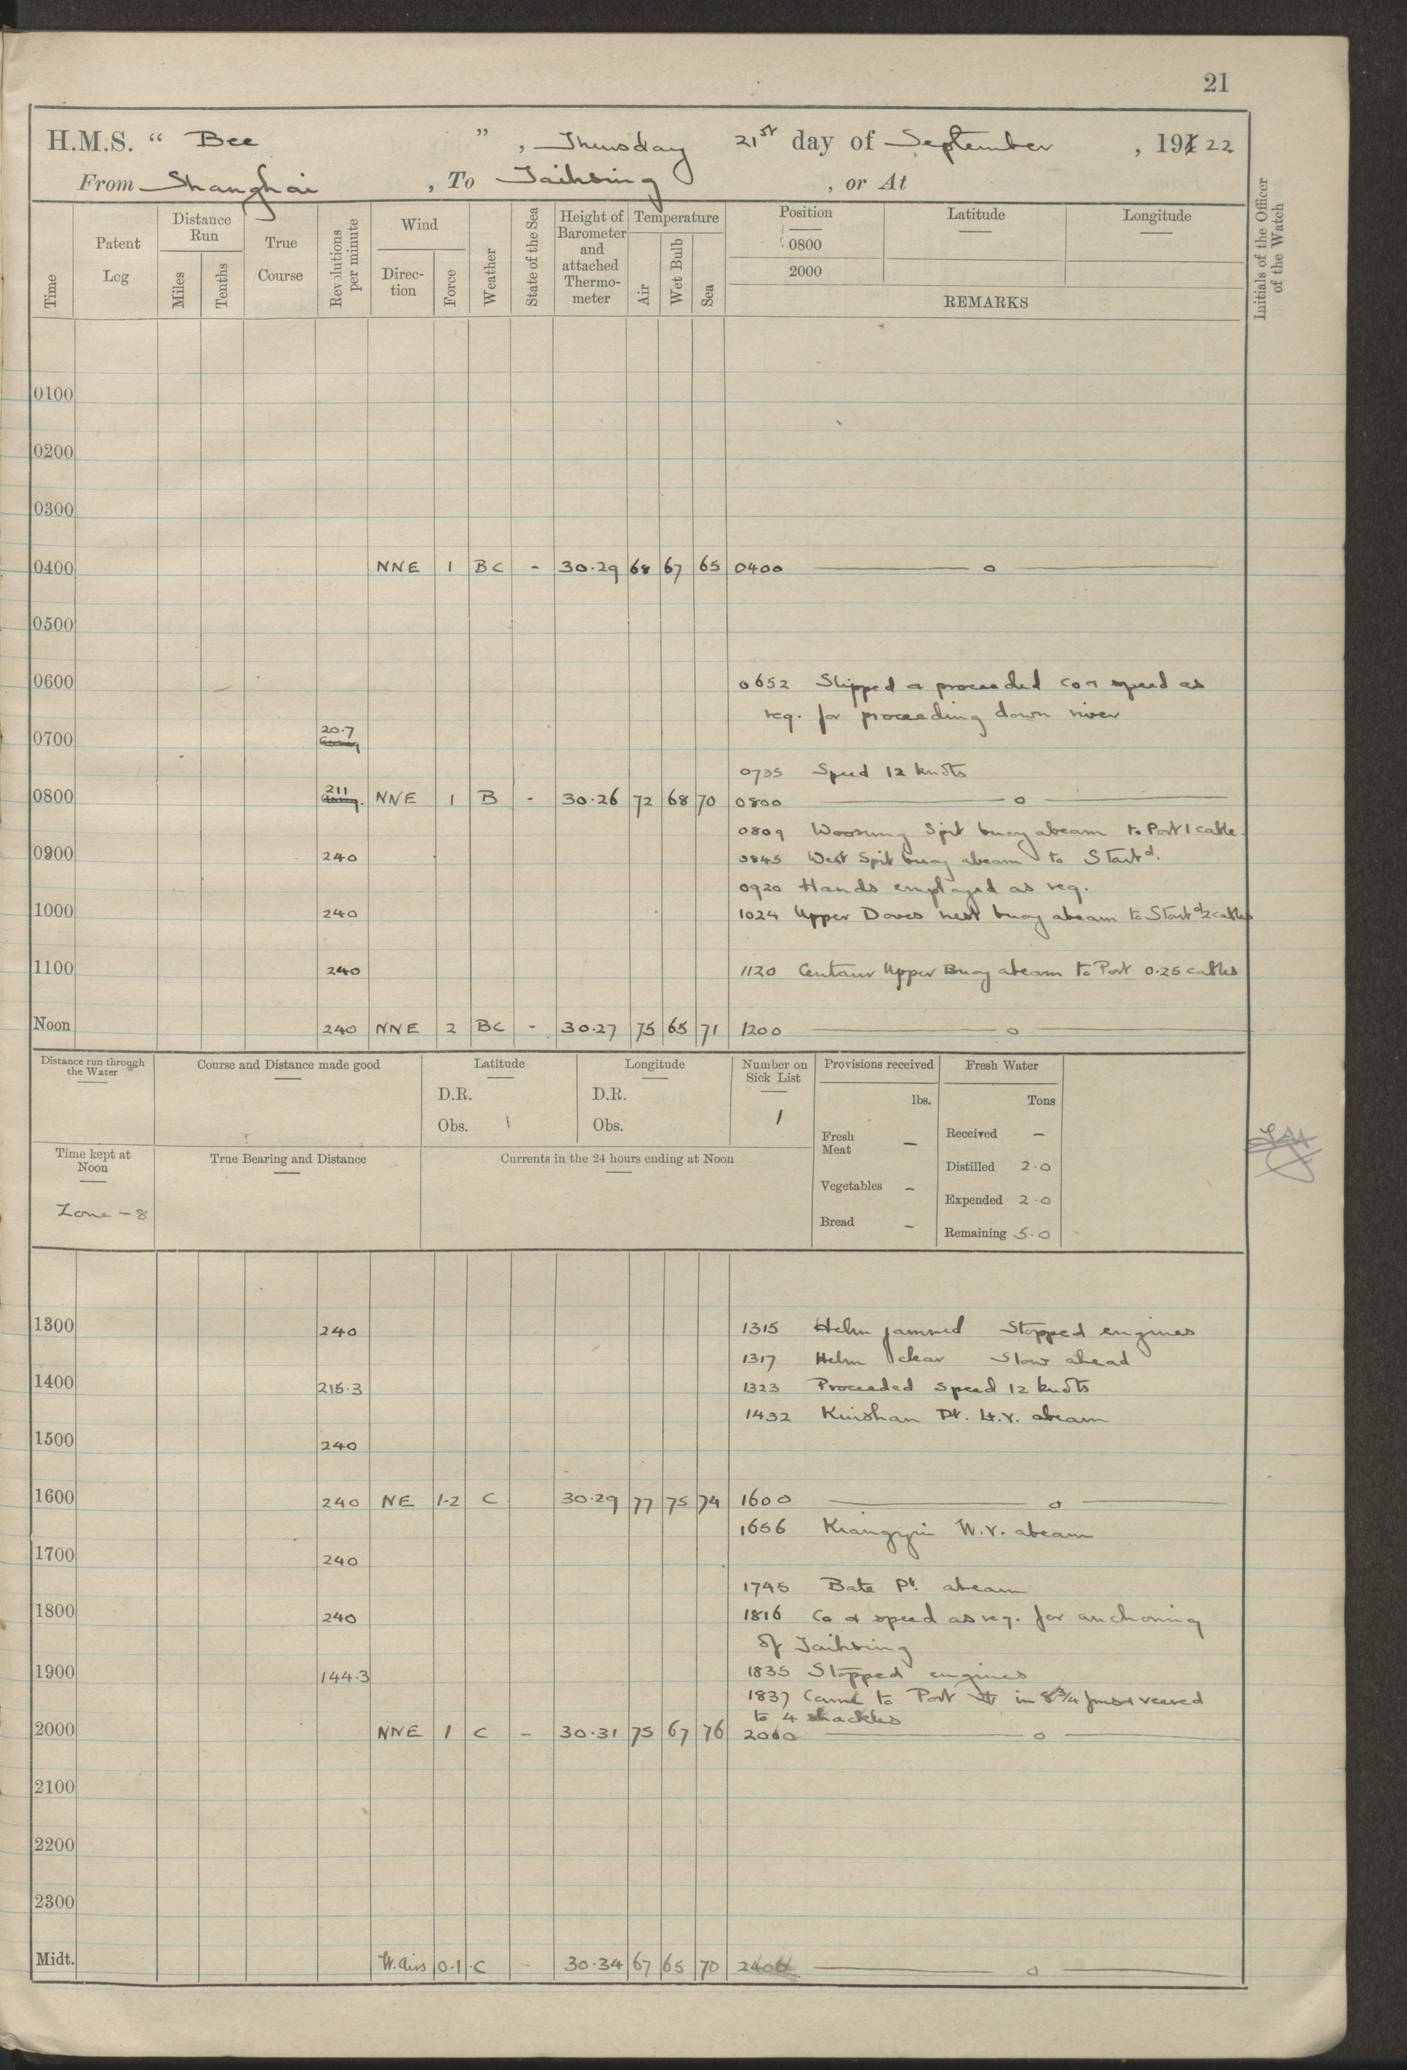 21
H.M.S. “ Bee ”, Thursday 21st day of September, 191 22
From Shanghai, To Taihsing, or At
Time
Patent Log
Distance Run
Miles
Tenths
True Course
Revolutions per minute
Wind
Direc-tion
Force
Weather
State of the Sea
Height of Barometer and attached Thermo-meter
Temperature
Air
Wet Bulb
Sea
Position
0800
2000
Latitude
Longitude
REMARKS
Initials of the Officer of the Watch
0100
0200
0300
0400 NNE 1 BC - 30.29 68 67 65 0400 —— o ——
0500
0600
0652 Slipped & proceeded Co & speed as
req. for proceeding down river
0700 20.7
0735 Speed 12 knots
0800 211 NNE 1 B - 30.26 72 68 70 0800 —— o ——
0809 Woosung Spit buoy abeam to Port 1 cable.
0900 240 0845 West Spit buoy abeam to Starbd.
0920 Hands employed as req.
1000 240 1024 Upper Doves nest buoy abeam to Starbd 2 cables
1100 240 1120 Centaur Upper Buoy abeam to Port 0.25 cables
Noon 240 NNE 2 BC - 30.27 75 65 71 1200 —— o ——
Distance run through the Water
Course and Distance made good
Latitude
D.R.
Obs.
Longitude
D.R.
Obs.
Number on Sick List
1
Provisions received
lbs.
Fresh Meat —
Vegetables –
Bread –
Fresh Water
Tons
Received –
Distilled 2.0
Expended 2.0
Remaining 5.0
Time kept at Noon
Zone - 8
True Bearing and Distance
Currents in the 24 hours ending at Noon
1300 240 1315 Helm jammed Stopped engines
1317 Helm clear Slow ahead
1400 215.3 1323 Proceeded speed 12 knots
1432 Kinshan Pt. Lt.V. abeam
1500 240
1600 240 NE 1-2 C 30.29 77 75 74 1600 —— o ——
1656 Kiangyin W.V. abeam
1700 240
1745 Bate Pt. abeam
1800 240 1816 Co & speed as req. for anchoring
off Taihsing
1900 144.3 1835 Stopped engines
1837 Came to Port in 8¾ fms & veered
to 4 shackles
2000 NNE 1 C - 30.31 75 67 76 2000 —— o ——
2100
2200
2300
Midt. Lt. Airs 0-1 C - 30.34 67 65 70 2400 —— o ——